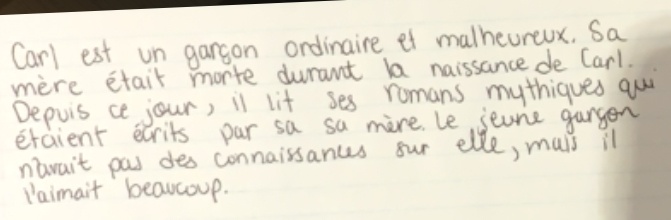 Carl est un garçon ordinaire et malheureux. Sa
mère était morte durant la naissance de Carl.
Depuis ce jour, il lit ses romans mythiques qui
étaient écrits par sa sa mère. Le jeune garçon
n'avait pas des connaissances sur elle, mais il
l'aimait beaucoup.